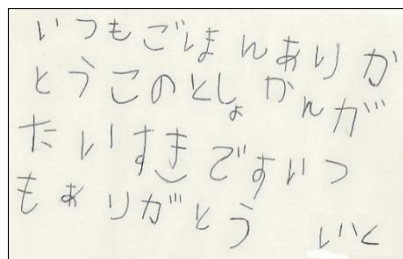 いつもごほんありか
とうこのとしょかんが
だいすきですいつ
もありがとう いく